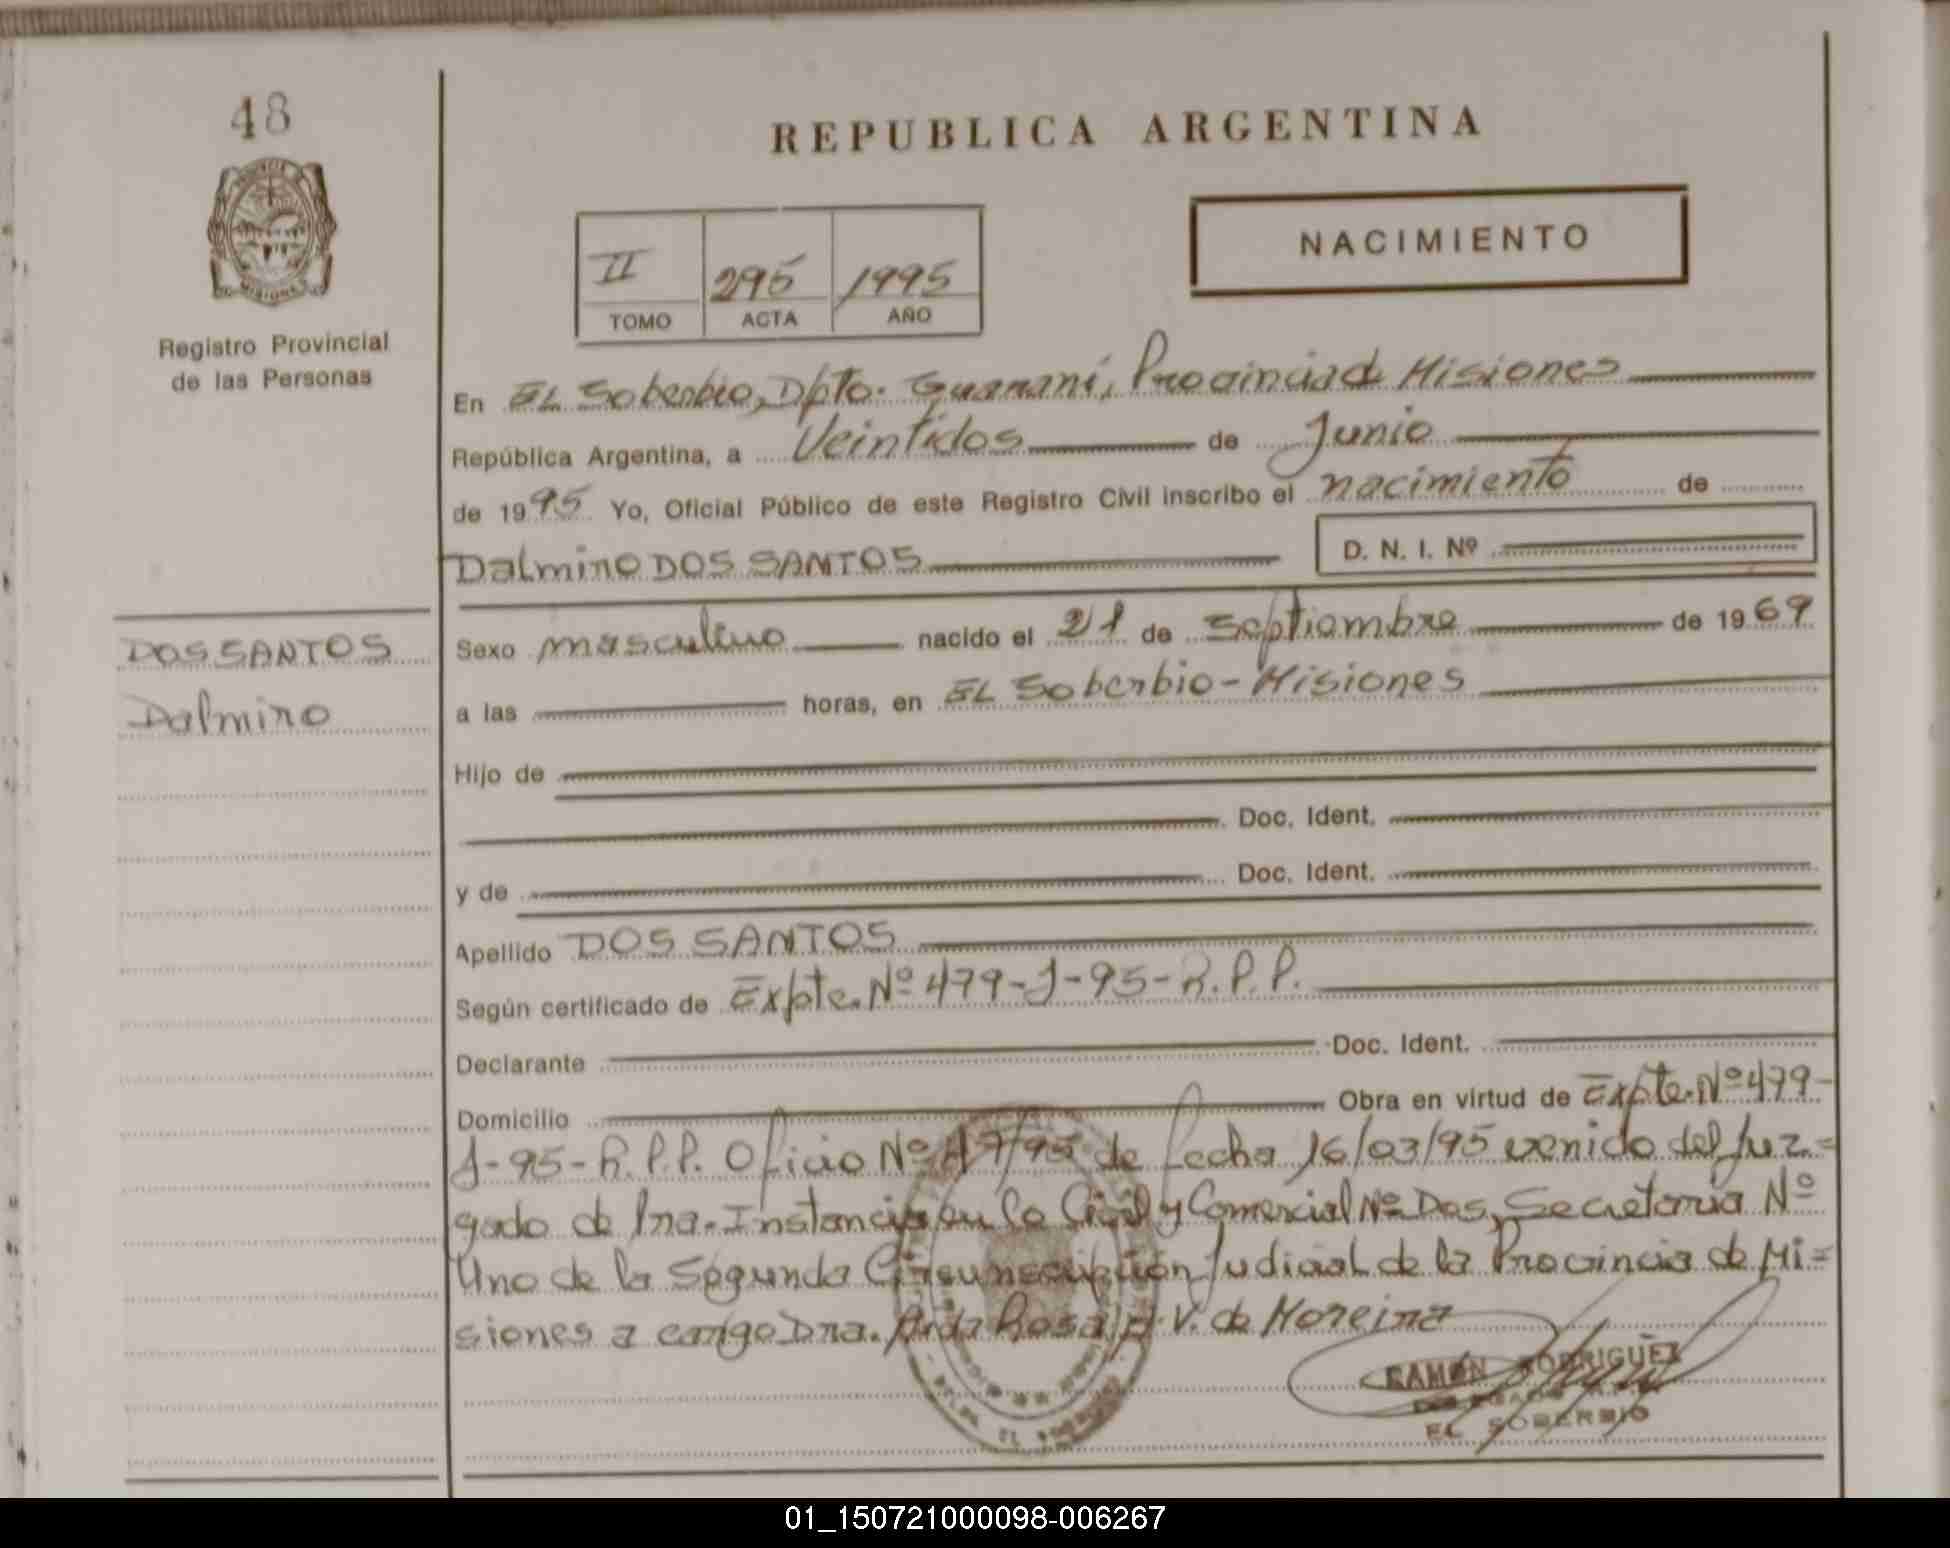 48
REPUBLICA ARGENTINA
NACIMIENTO
II 295 1995
TOMO ACTA AÑO
Registro Provincial
de las Personas
En EL Soberbio, Dpto. Guaraní, Provincia de Misiones
República Argentina, a Veintidos de Junio
de 1995 Yo, Oficial Público de este Registro Civil inscribo el nacimiento de
Dalmiro DOS SANTOS D. N. I. Nº
DOS SANTOS
Dalmiro
Sexo masculino nacido el 21 de Septiembre de 1969
a las horas, en EL Soberbio - Misiones
Hijo de
Doc. Ident.
y de Doc. Ident.
Apellido DOS SANTOS
Según certificado de Expte. Nº 479-J-95-R.P.P.
Declarante Doc. Ident.
Domicilio Obra en virtud de Expte. Nº 479-
J-95-R.P.P. Oficio Nº /95 de fecha 16/03/95 venido del Juz=
gado de Pra. Instancia en lo Civil y Comercial Nº Dos, Secretaria Nº
Uno de la Segunda Circunscripción Judicial de la Provincia de Mi=
siones a cargo Dra. Rosa V. de Moreira
RAMÓN RODRIGUEZ
EL SOBERBIO
01_150721000098-006267